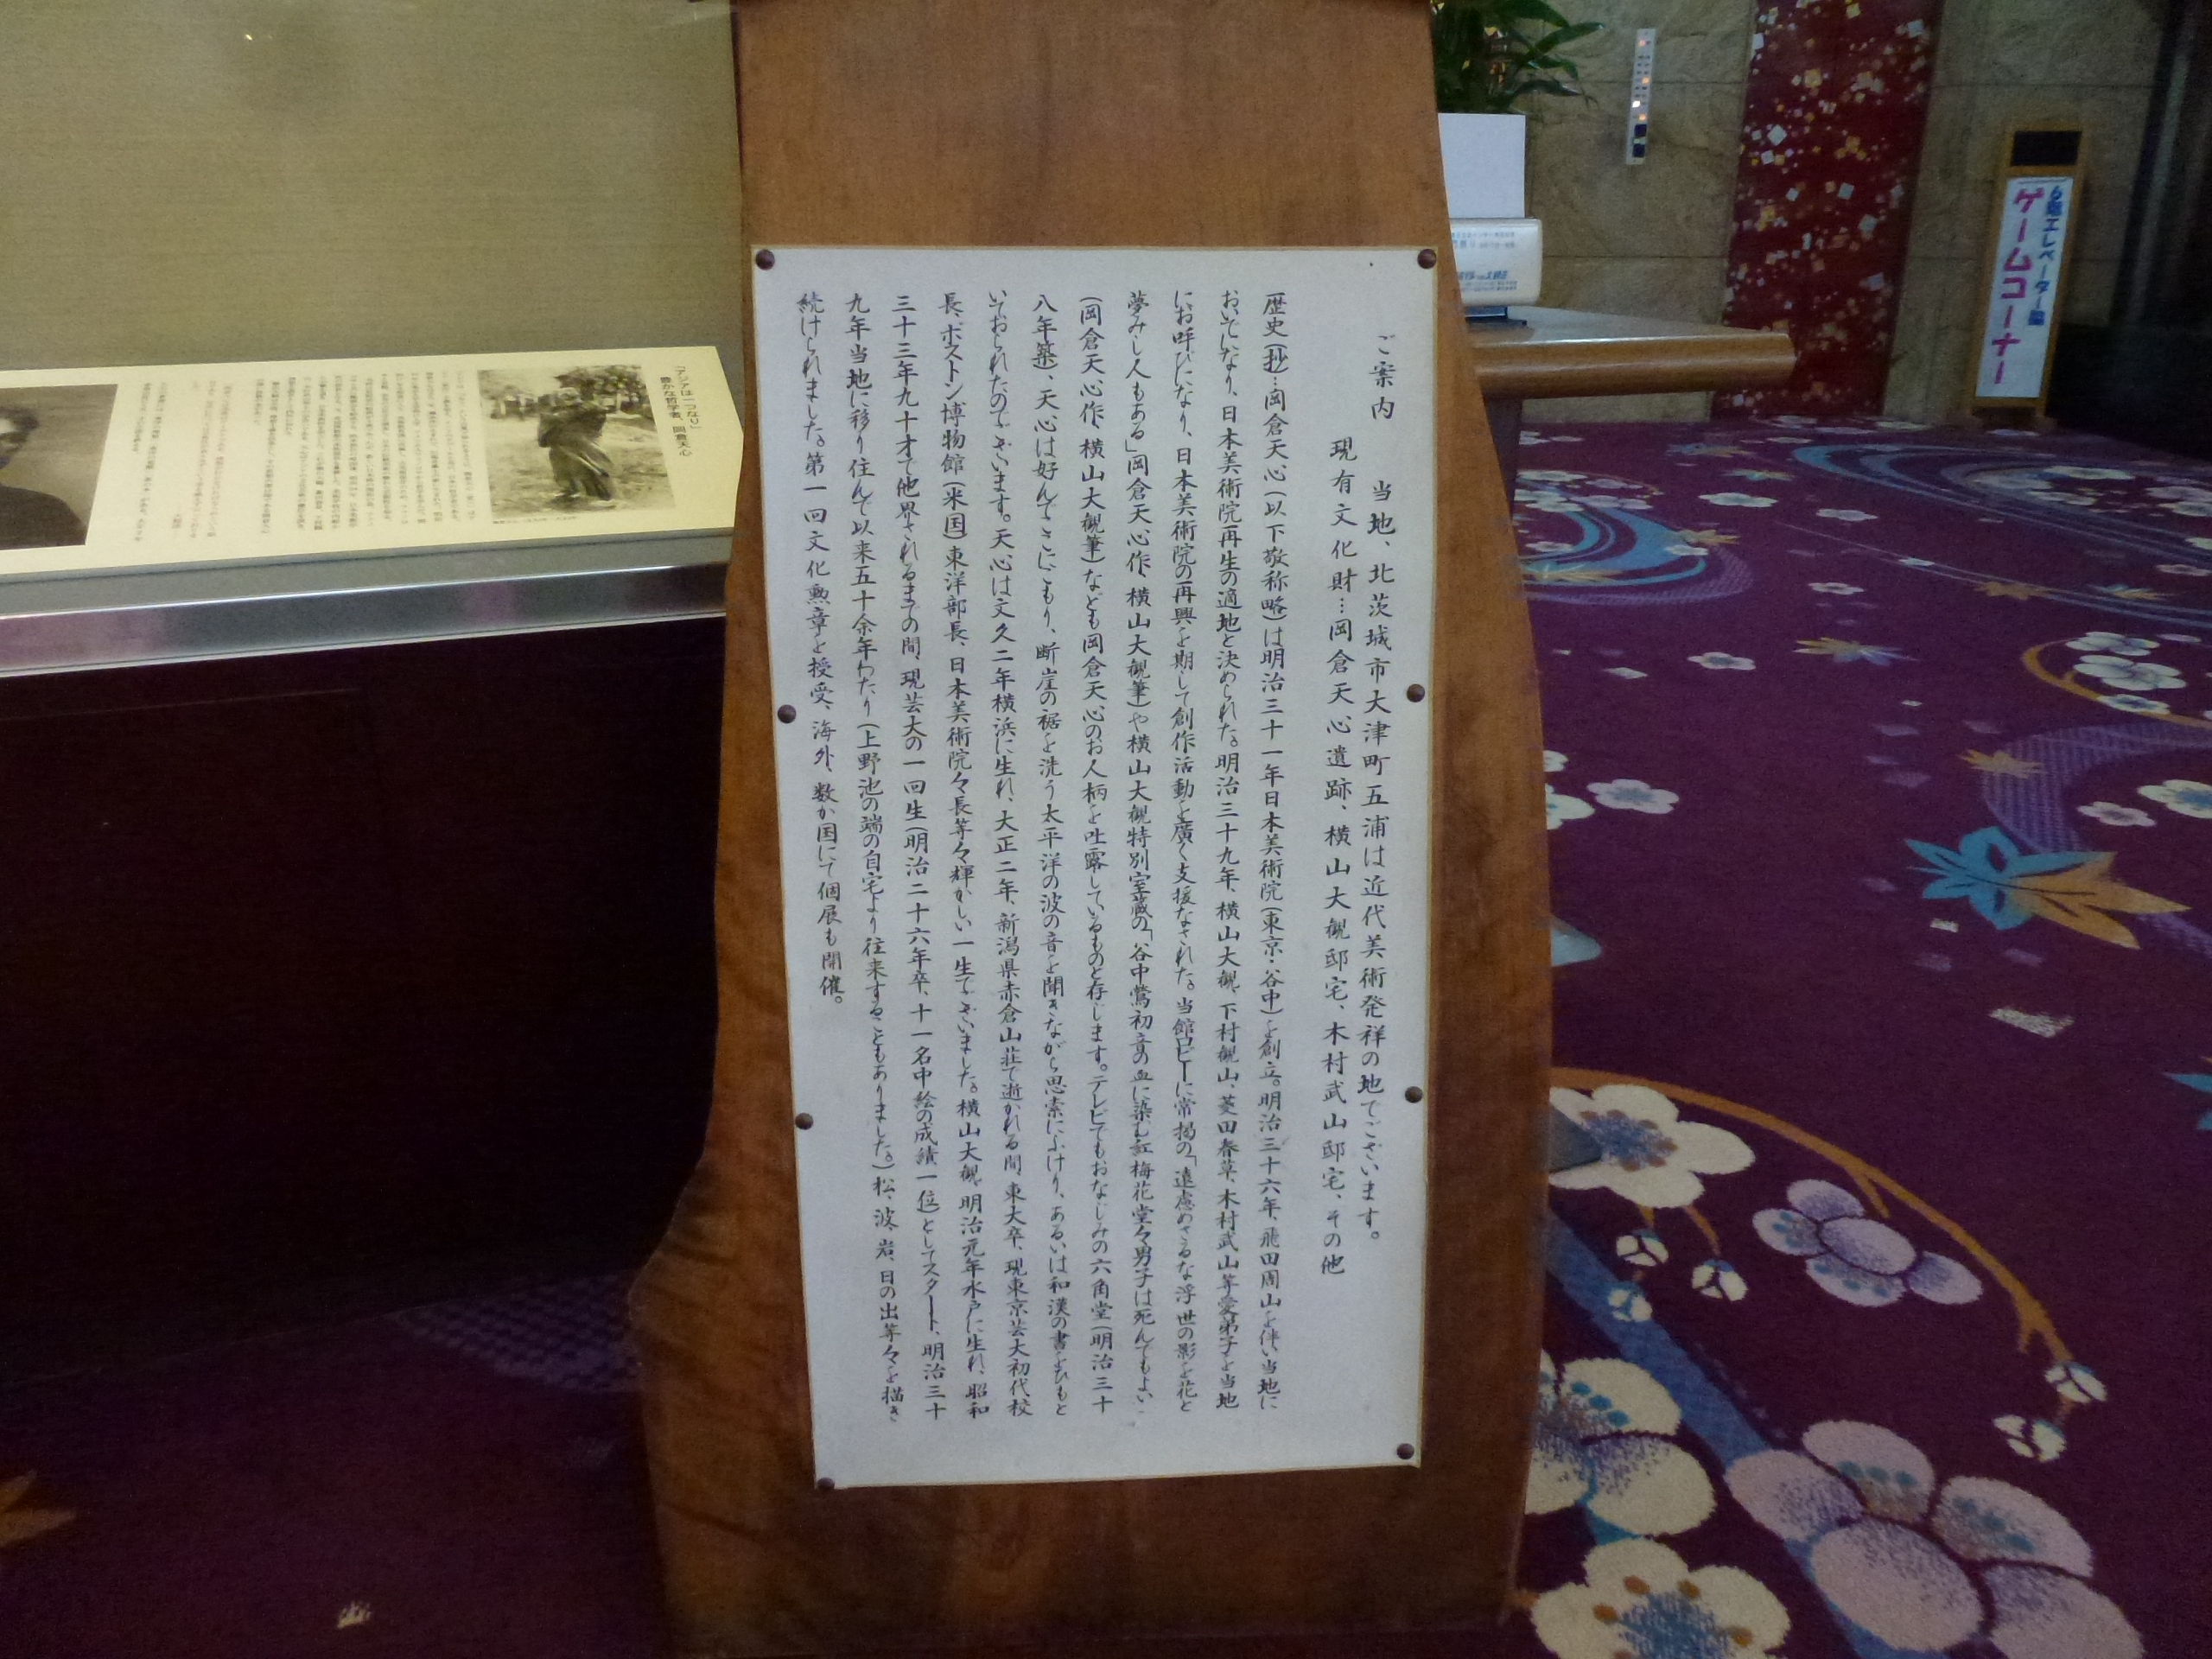 ご案内　当地、北茨城市大津町五浦は近代美術発祥の地でございます。
現有文化財…岡倉天心遺跡、横山大観邸宅、木村武山邸宅、その他
歴史(抄)…岡倉天心(以下敬称略)は明治三十一年日本美術院(東京・谷中)を創立。明治三十六年、飛田周山を伴い当地に
おいでになり、日本美術院再生の適地と決められた。明治三十九年、横山大観、下村観山、菱田春草、木村武山等愛弟子を当地
にお呼びになり、日本美術院の再興を期して創作活動を廣く支援なされた。当館ロビーに常掲の「遠慮めさるな浮世の影を花と
夢みし人もある」岡倉天心作、横山大観筆)や横山大観特別室蔵の「谷中鶯初音の血に染む紅梅花堂々男子は死んでもよい」
(岡倉天心作、横山大観筆)なども岡倉天心のお人柄を吐露しているものと存じます。テレビでもおなじみの六角堂(明治三十
八年築)、天心は好んでここにこもり、断崖の裾を洗う太平洋の波の音を聞きながら思索にふけり、あるいは和漢の書をひもと
いておられたのでございます。天心は文久二年横浜に生れ、大正二年、新潟県赤倉山荘で逝かれる間、東大卒、現東京芸大初代校
長、ボストン博物館(米国)東洋部長、日本美術院々長等々輝かしい一生でございました。横山大観、明治元年水戸に生れ、昭和
三十三年九十才で他界されるまでの間、現芸大の一回生(明治二十六年卒、十一名中絵の成績一位)としてスタート、明治三十
九年当地に移り住んで以来五十余年わたり(上野池の端の自宅より往来することもありました。)松、波、岩、日の出等々を描き
続けられました。第一回文化勲章を授受、海外、数か国にて個展も開催。
「アジアは一つなり」
豊かな哲学者、岡倉天心
6階エレベーター脇
ゲームコーナー